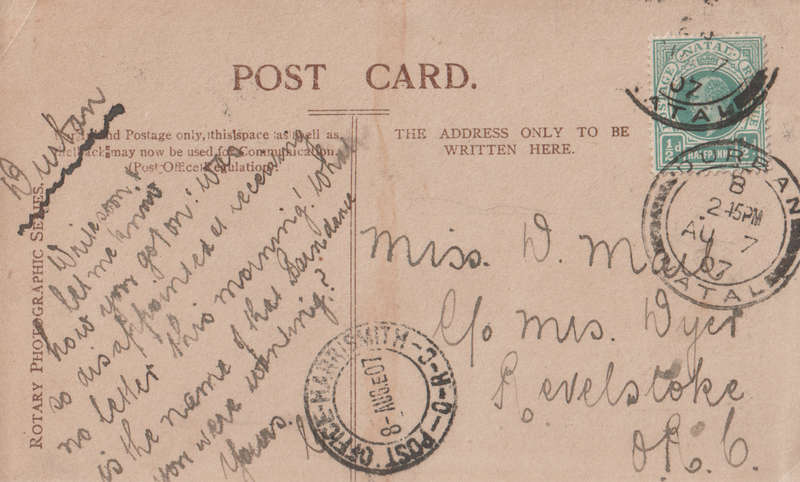 POST CARD.
For Inland Postage only, this space as well as
the back may now be used for Communication.
(Post Office Regulation).
THE ADDRESS ONLY TO BE
WRITTEN HERE.
ROTARY PHOTOGRAPHIC SERIES.
Durban
Write soon &
let me know
how you got on. Was
so disappointed at receiving
no letter this morning! What
is the name of that dance
you were wanting?
Yours.
Miss. D. Male
C/o Mrs. Dyer
Revelstoke
O.R.C.
POSTAGE NATAL REVENUE
½d HALFPENNY ½d
7
07
NATAL
DURBAN
B
2.45PM
AU 7
07
NATAL
POST OFFICE-HARRISMITH-O-R-C-
8-AUG07